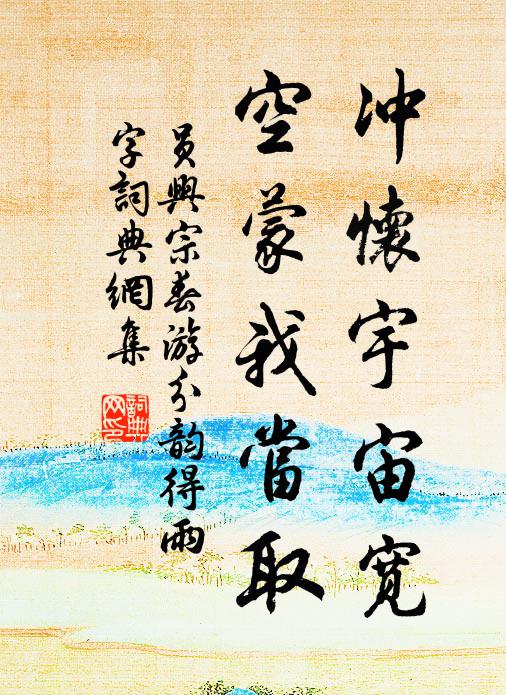 冲懷宇宙寬
空蒙我當取
員興宗春游分韵得雨
字詞典網集
詞典網印